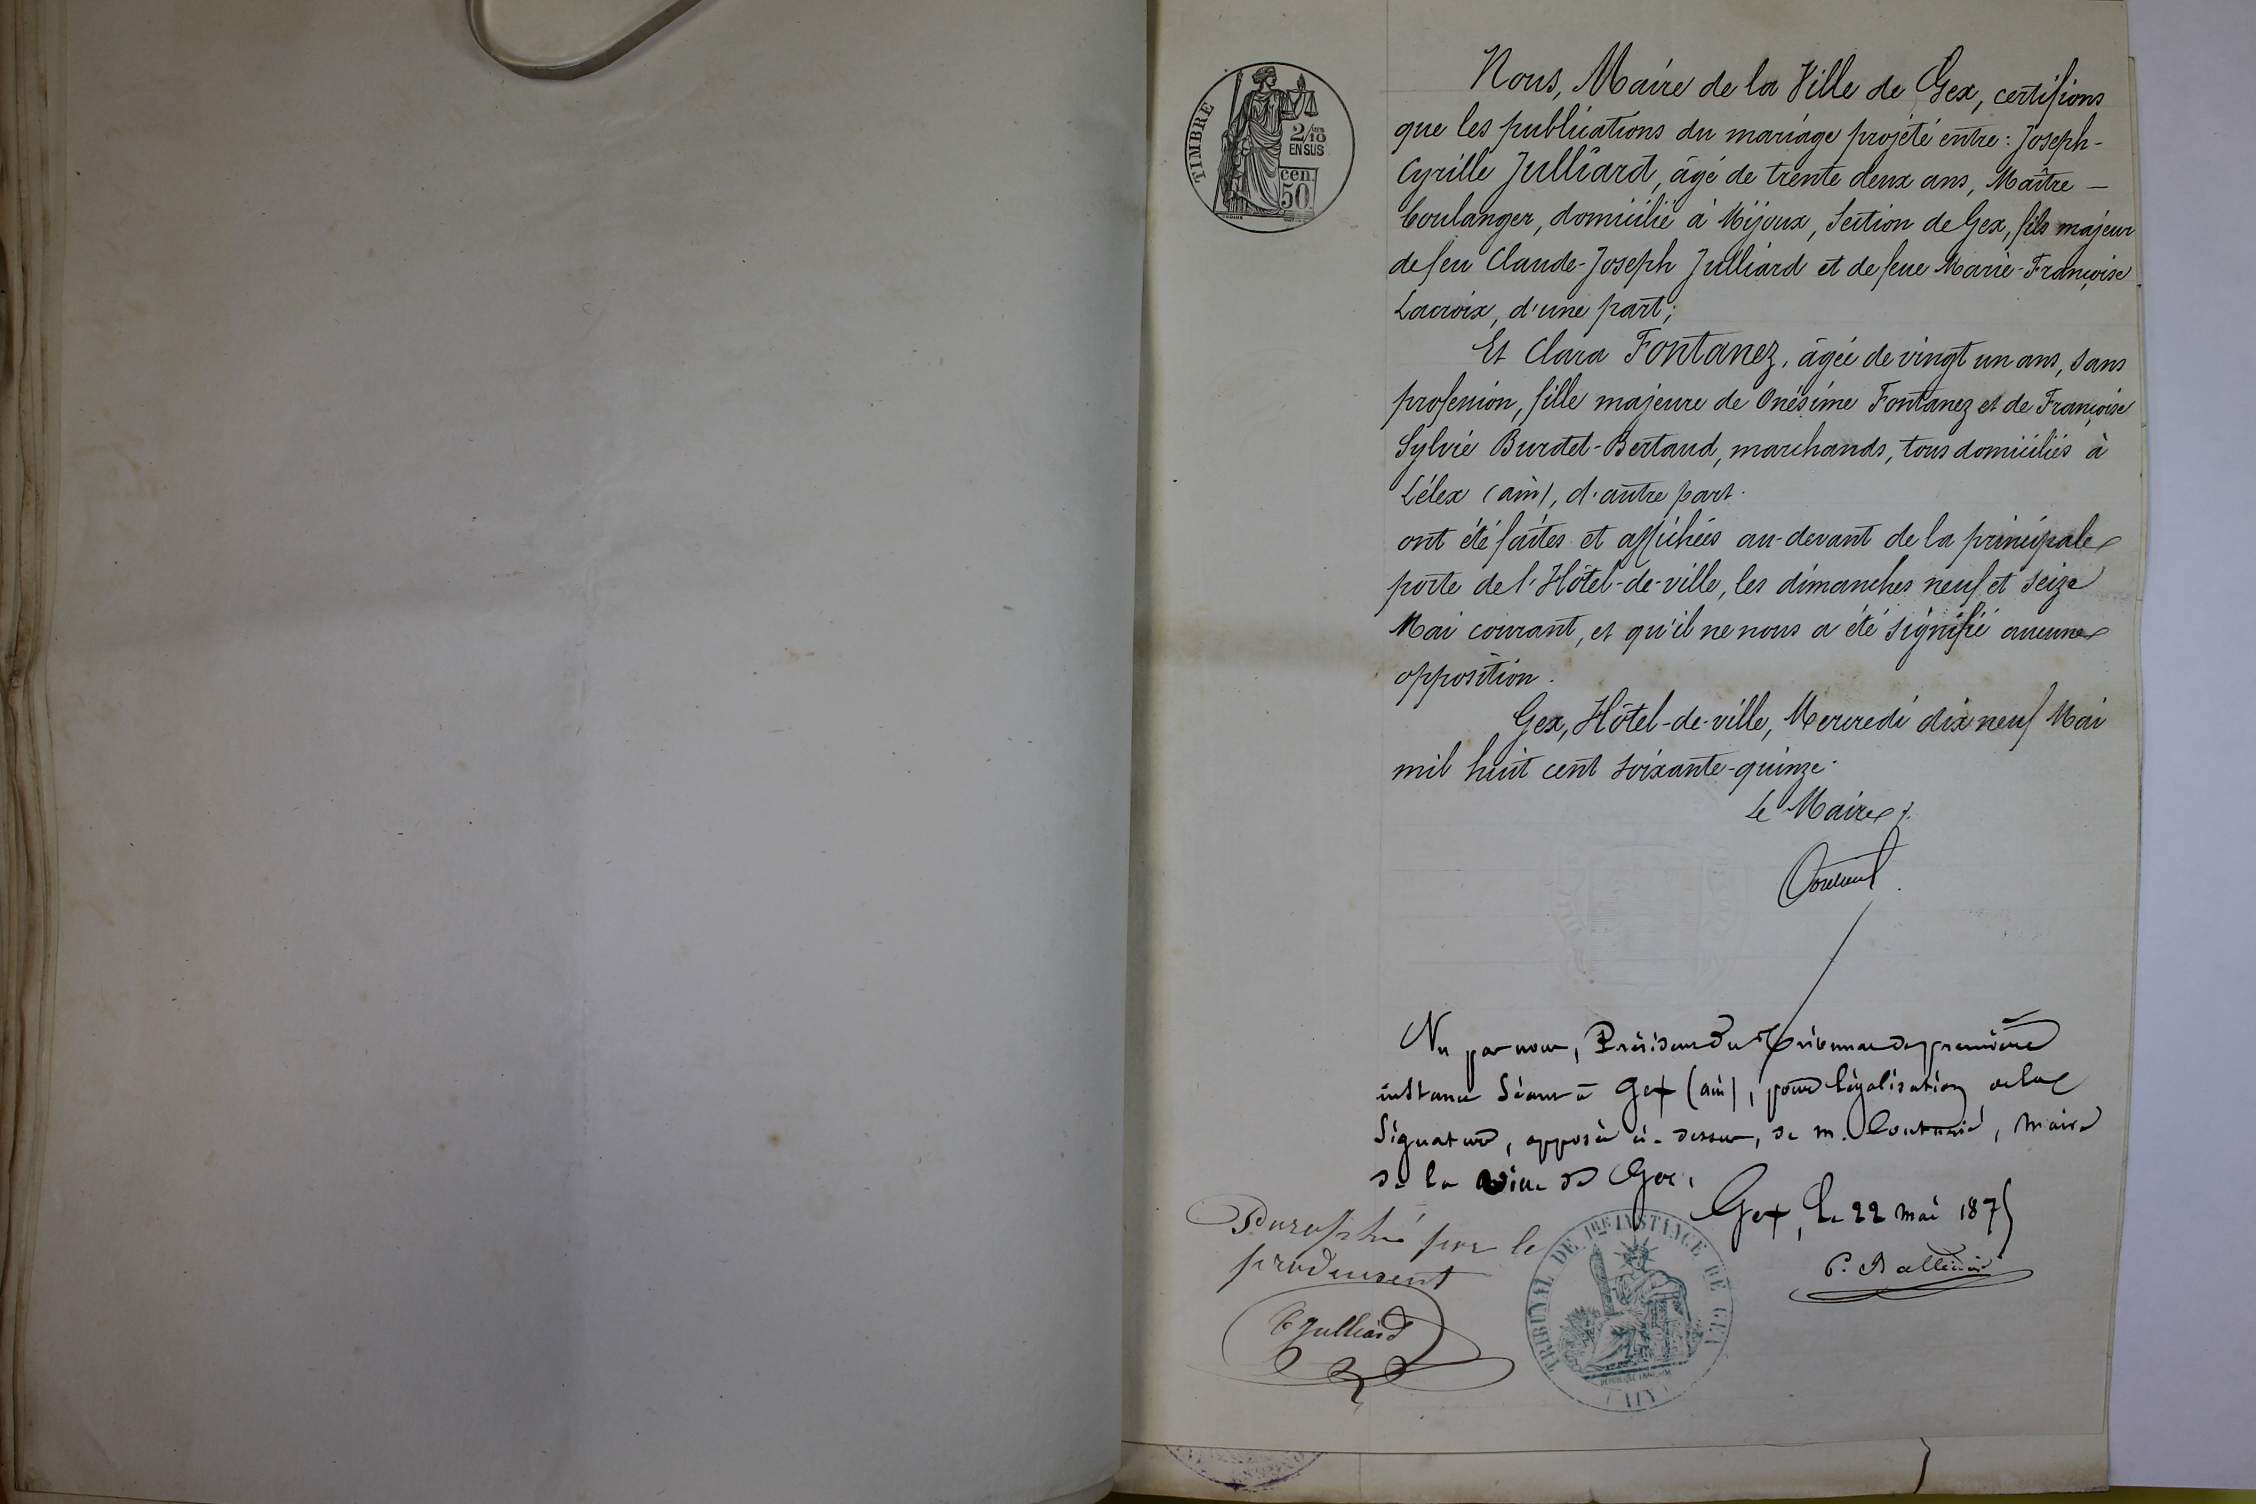 TIMBRE
2/10
EN SUS
cen.
50
Nous, Maire de la Ville de Gex, certifions
que les publications du mariage projété entre : Joseph-
Cyrille Julliard, âgé de trente deux ans, Maître —
boulanger, domicilié à Mijoux, Section de Gex, fils majeur
de feu Claude-Joseph Julliard et de feue Marie-Françoise
Lacroix, d'une part ;
Et Clara Fontanez, âgée de vingt un ans, sans
profession, fille majeure de Onésime Fontanez et de Françoise
Sylvie Burdet-Bertaud, marchands, tous domiciliés à
Lélex (ain), d'autre part.
ont été faites et affichées au-devant de la principale
porte de l'Hôtel-de-ville, les dimanches neuf et seize
Mai courant, et qu'il ne nous a été signifié aucune
opposition.
Gex, Hôtel-de-ville, Mercredi dix neuf Mai
mil huit cent soixante-quinze.
Le Maire,
Vu par nous, Président du Tribunal de première
instance séant à Gex (ain), pour légalisation de la
signature, apposée ci-dessus, de M. , Maire
de la ville de Gex.
Gex, le 22 mai 1875
Paraphé par le
C Julliard
TRIBUNAL DE 1RE INSTANCE DE GEX
(AIN)